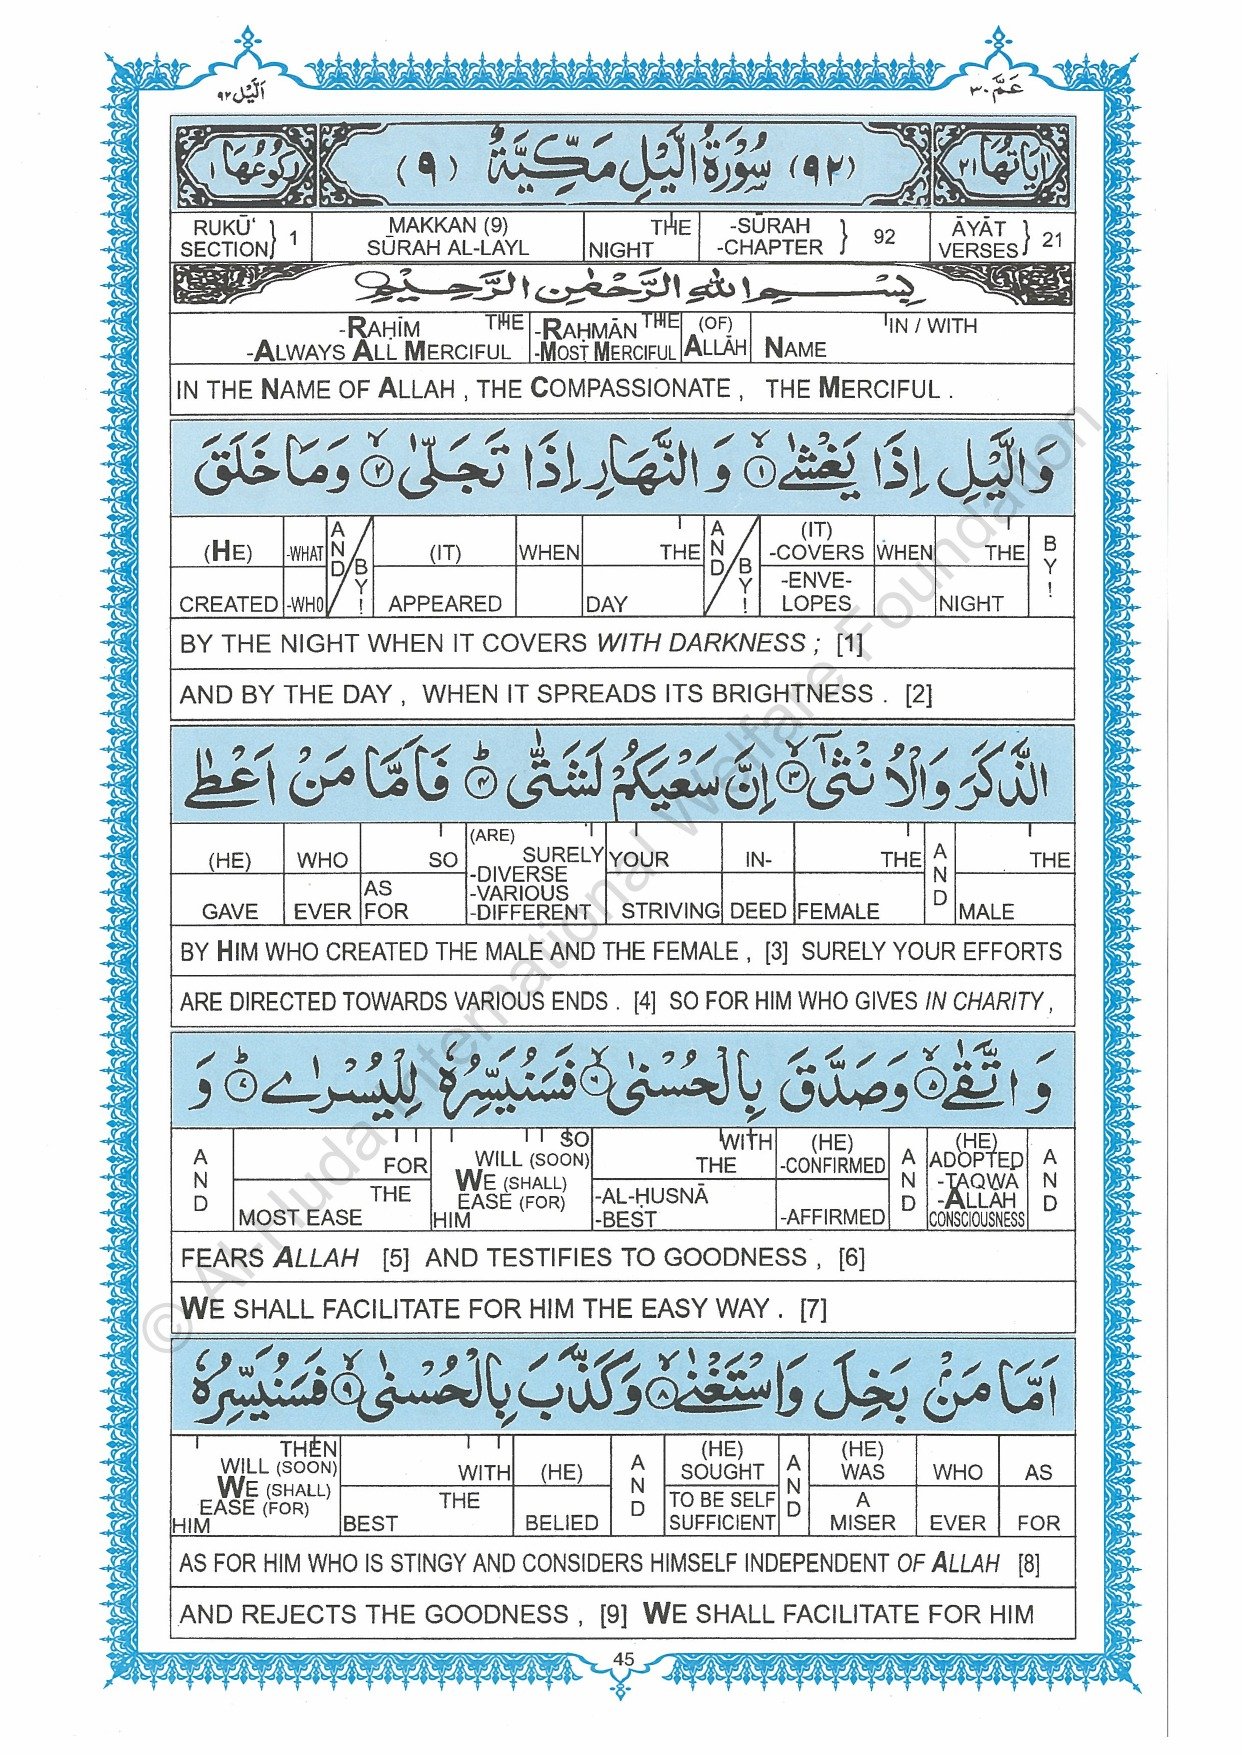 اَلَّيْل ٩٢ عَمَّ ٣٠
اٰيَاتُهَا ٢١ (٩٢) سُوْرَةُ الَّيْلِ مَكِّيَّةٌ (٩) رُكُوْعُهَا ١
RUKŪ‘ SECTION } 1 MAKKAN (9) SŪRAH AL-LAYL THE NIGHT -SŪRAH -CHAPTER } 92 ĀYĀT VERSES } 21
بِسْمِ اللّٰهِ الرَّحْمٰنِ الرَّحِيْمِ
-RAḤĪM THE -ALWAYS ALL MERCIFUL -RAḤMĀN THE -MOST MERCIFUL (OF) ALLĀH IN / WITH NAME
IN THE NAME OF ALLAH , THE COMPASSIONATE , THE MERCIFUL .
وَالَّيْلِ اِذَا يَغْشٰى ۙ﴿١﴾ وَ النَّهَارِ اِذَا تَجَلّٰى ۙ﴿٢﴾ وَمَا خَلَقَ
(HE) CREATED -WHAT -WHO AND / BY! (IT) APPEARED WHEN THE DAY AND / BY! (IT) -COVERS -ENVE- LOPES WHEN THE NIGHT BY!
BY THE NIGHT WHEN IT COVERS WITH DARKNESS ; [1]
AND BY THE DAY , WHEN IT SPREADS ITS BRIGHTNESS . [2]
الذَّكَرَ وَالْاُنْثٰٓى ۙ﴿٣﴾ اِنَّ سَعْيَكُمْ لَشَتّٰى ؕ﴿٤﴾ فَاَمَّا مَنْ اَعْطٰى
(HE) GAVE WHO EVER SO AS FOR (ARE) SURELY -DIVERSE -VARIOUS -DIFFERENT YOUR STRIVING IN- DEED THE FEMALE AND THE MALE
BY HIM WHO CREATED THE MALE AND THE FEMALE , [3] SURELY YOUR EFFORTS
ARE DIRECTED TOWARDS VARIOUS ENDS . [4] SO FOR HIM WHO GIVES IN CHARITY ,
وَ اتَّقٰى ۙ﴿٥﴾ وَصَدَّقَ بِالْحُسْنٰى ۙ﴿٦﴾ فَسَنُيَسِّرُهٗ لِلْيُسْرٰى ؕ﴿٧﴾ وَ
AND FOR THE MOST EASE SO WILL (SOON) WE (SHALL) EASE (FOR) HIM WITH THE -AL-ḤUSNĀ -BEST (HE) -CONFIRMED -AFFIRMED AND (HE) ADOPTED -TAQWA -ALLĀH CONSCIOUSNESS AND
FEARS ALLAH [5] AND TESTIFIES TO GOODNESS , [6]
WE SHALL FACILITATE FOR HIM THE EASY WAY . [7]
اَمَّا مَنْۢ بَخِلَ وَاسْتَغْنٰى ۙ﴿٨﴾ وَكَذَّبَ بِالْحُسْنٰى ۙ﴿٩﴾ فَسَنُيَسِّرُهٗ
THEN WILL (SOON) WE (SHALL) EASE (FOR) HIM WITH THE BEST (HE) BELIED AND (HE) SOUGHT TO BE SELF SUFFICIENT AND (HE) WAS A MISER WHO EVER AS FOR
AS FOR HIM WHO IS STINGY AND CONSIDERS HIMSELF INDEPENDENT OF ALLAH [8]
AND REJECTS THE GOODNESS , [9] WE SHALL FACILITATE FOR HIM
45
© Al-Huda International Welfare Foundation